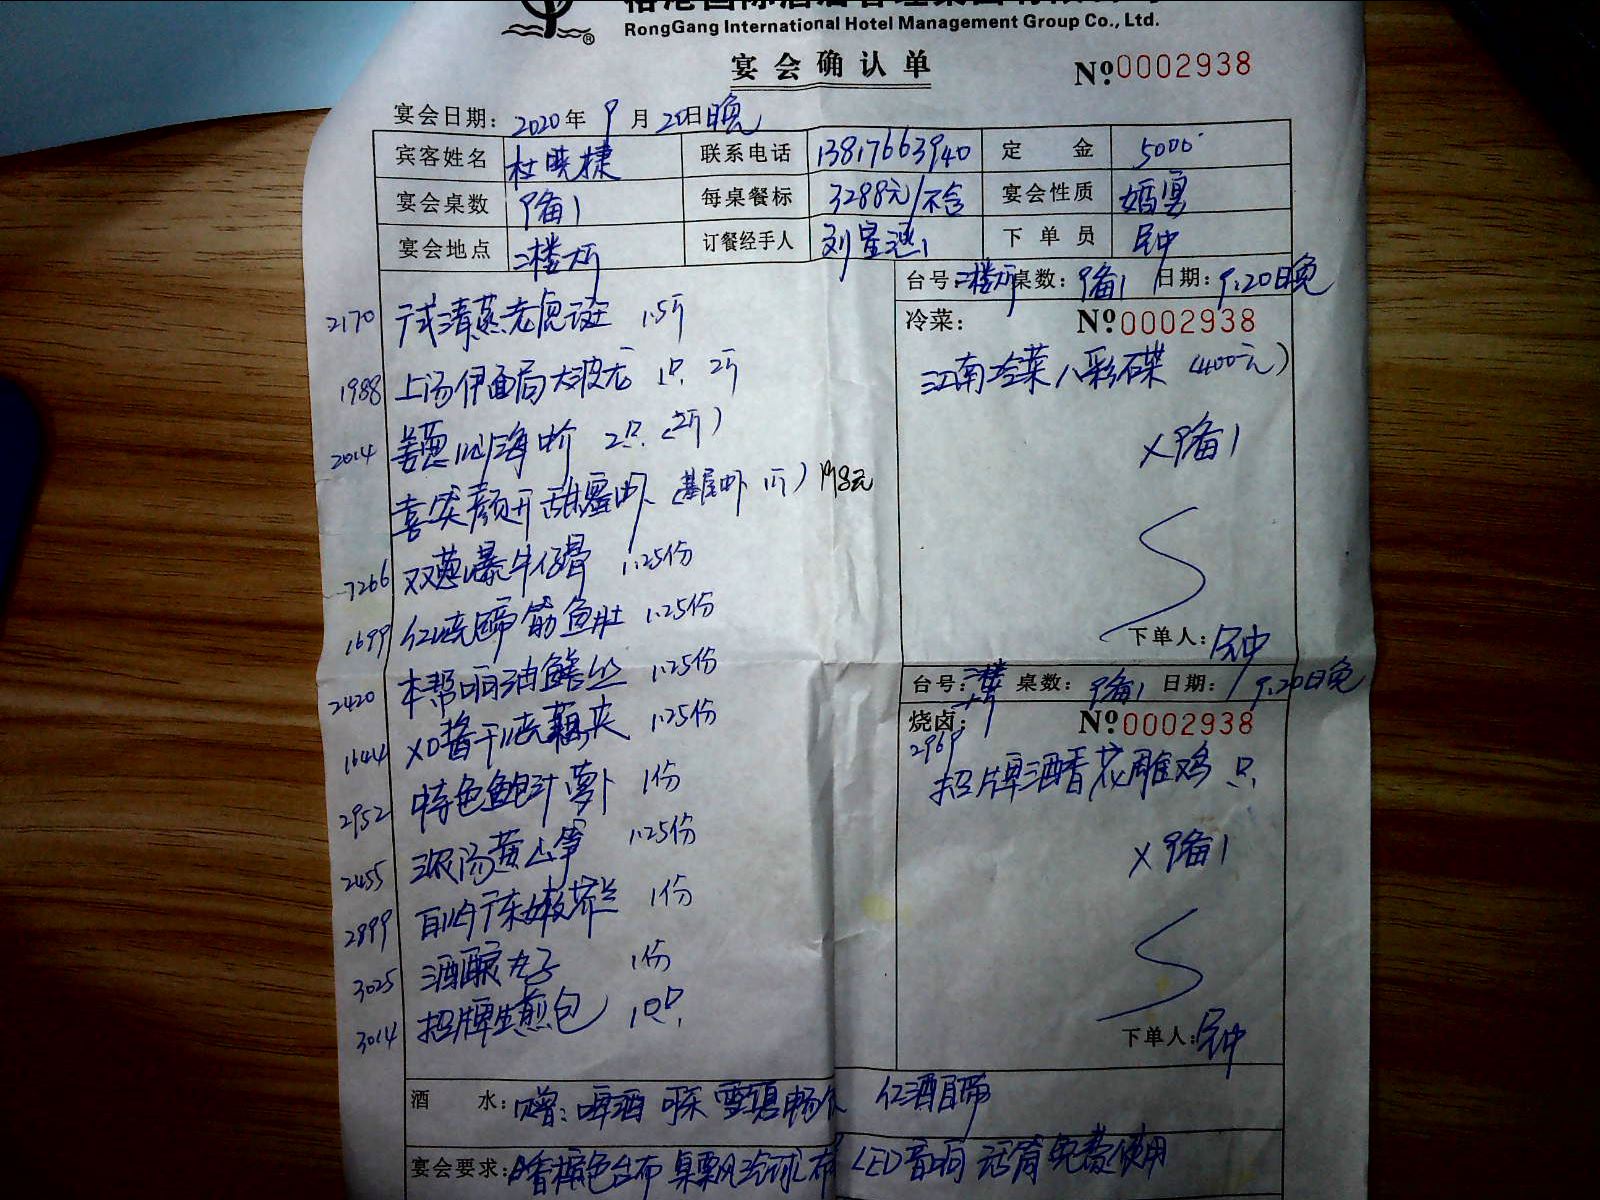 RongGang International Hotel Management Group Co., Ltd.
宴会确认单 №0002938
宴会日期: 2020年 9月20日晚
宾客姓名 杜晓捷 联系电话 13817663940 定金 5000
宴会桌数 9备1 每桌餐标 3288元/不含 宴会性质 婚宴
宴会地点 二楼大厅 订餐经手人 刘星 下单员
台号: 二楼大厅 桌数: 9备1 日期: 9.20晚
冷菜: №0002938
江南冷菜八彩碟 (400元)
X 9备1
下单人:
2170 广式清蒸老虎斑 1.5斤
1988 上汤伊面焗大波龙 1只 2斤
2014 姜葱炒海中介 2只 (2斤)
喜笑颜开甜蜜虾 (基尾虾 1斤) 198元
7266 双葱爆牛仔骨 1.25份
1699 红烧蹄筋鱼肚 1.25份
2420 本帮响油鳝丝 1.25份
1644 XO酱干烧藕夹 1.25份
2952 特色鲍汁萝卜 1份
2455 浓汤黄山笋 1.25份
2899 白灼广东嫩芥兰 1份
3025 酒酿丸子 1份
3014 招牌生煎包 10只
台号: 二楼大厅 桌数: 9备1 日期: 9.20晚
烧卤: №0002938
2969
招牌酒香花雕鸡 1只
X 9备1
下单人:
酒水: 赠: 啤酒 可乐 雪碧畅饮 红酒自带
宴会要求: 香槟色台布 桌飘气球 LED 音响 话筒免费使用